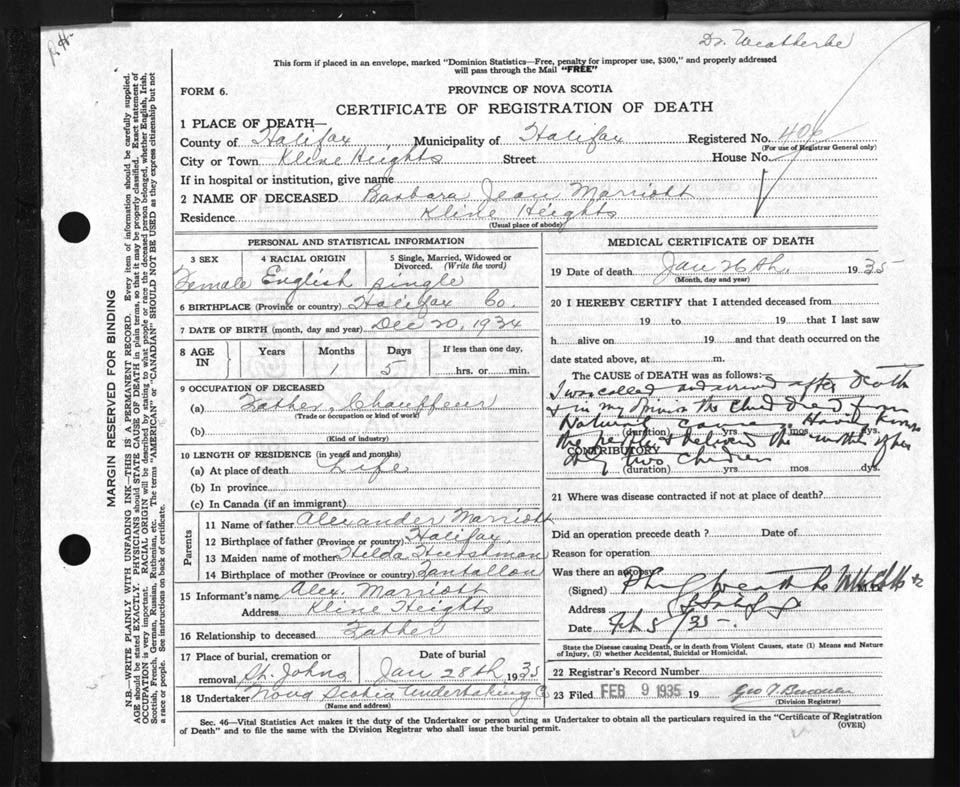 Dr. Weatherbe
This form if placed in an envelope, marked "Dominion Statistics—Free, penalty for improper use, $300," and properly addressed
will pass through the Mail "FREE"
FORM 6.
PROVINCE OF NOVA SCOTIA
CERTIFICATE OF REGISTRATION OF DEATH
1 PLACE OF DEATH—
County of Halifax, Municipality of Halifax Registered No. 406
(For use of Registrar General only)
City or Town Kline Heights Street House No.
If in hospital or institution, give name
2 NAME OF DECEASED Barbara Jean Marriott
Residence Kline Heights
(Usual place of abode)
PERSONAL AND STATISTICAL INFORMATION
3 SEX 4 RACIAL ORIGIN 5 Single, Married, Widowed or
Divorced. (Write the word)
Female English single
6 BIRTHPLACE (Province or country) Halifax Co.
7 DATE OF BIRTH (month, day and year) Dec 20, 1934
8 AGE IN Years Months Days If less than one day,
1 5 hrs. or min.
9 OCCUPATION OF DECEASED
(a) Father, Chauffeur
(Trade or occupation or kind of work)
(b)
(Kind of industry)
10 LENGTH OF RESIDENCE (in years and months)
(a) At place of death Life
(b) In province
(c) In Canada (if an immigrant)
Parents
11 Name of father Alexander Marriott
12 Birthplace of father (Province or country) Halifax
13 Maiden name of mother Hilda
14 Birthplace of mother (Province or country) Tantallon
15 Informant's name Alex. Marriott
Address Kline Heights
16 Relationship to deceased Father
17 Place of burial, cremation or Date of burial
removal St. Johns Jan 28th 1935
18 Undertaker Nova Scotia Undertaking Co
(Name and address)
MEDICAL CERTIFICATE OF DEATH
19 Date of death Jan 26th, 1935
(Month, day and year)
20 I HEREBY CERTIFY that I attended deceased from
19 to 19 that I last saw
h alive on 19 and that death occurred on the
date stated above, at m.
The CAUSE of DEATH was as follows:
I was called and arrived after death
& in my opinion the child died from
Natural causes. Have known
(duration) yrs. mos. dys.
the people & believe the mother
CONTRIBUTORY
two children
(duration) yrs. mos. dys.
21 Where was disease contracted if not at place of death?
Did an operation precede death? Date of
Reason for operation
Was there an autopsy
(Signed) Phil Weatherbe
Address Halifax
Date Feb 5/35
State the Disease causing Death, or in death from Violent Causes, state (1) Means and Nature
of Injury, (2) whether Accidental, Suicidal or Homicidal.
22 Registrar's Record Number
23 Filed FEB 9 1935 19
(Division Registrar)
Sec. 46—Vital Statistics Act makes it the duty of the Undertaker or person acting as Undertaker to obtain all the particulars required in the "Certificate of Registration
of Death" and to file the same with the Division Registrar who shall issue the burial permit.
(OVER)
MARGIN RESERVED FOR BINDING
N.B.—WRITE PLAINLY WITH UNFADING INK—THIS IS A PERMANENT RECORD. Every item of information should be carefully supplied.
AGE should be stated EXACTLY. PHYSICIANS should STATE CAUSE OF DEATH in plain terms, so that it may be properly classified. Exact statement of
OCCUPATION is very important. RACIAL ORIGIN will be described by stating to what people or race the deceased person belonged, whether English, Irish,
Scottish, French, German, Russian, Ruthenian, etc. The terms "AMERICAN" or "CANADIAN" SHOULD NOT BE USED as they express citizenship but not
a race or people. See instructions on back of certificate.